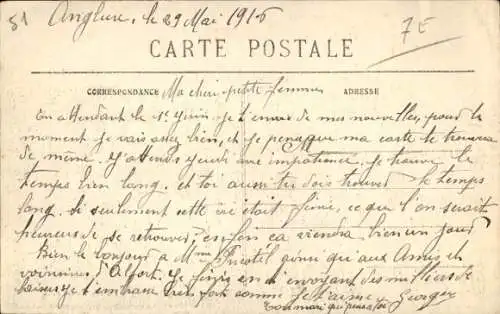 51 Anglure, le 29 Mai 1916
7E
CARTE POSTALE
CORRESPONDANCE
ADRESSE
Ma chère petite femme
En attendant le 1er Juin je t'envoie de mes nouvelles, pour le
moment je vais assez bien, et je pense que ma carte te trouvera
de même. J'attends jeudi avec impatience. Je trouve le
temps bien long. et toi aussi tu dois trouver le temps
long. si seulement cette vie était finie, ce que l'on serait
heureux de se retrouver; enfin ça viendra bien un jour
Bien le bonjour à Mme ainsi qu'aux Amis et
voisines d'Alfort. Je finis en t'envoyant des milliers de
baisers je t'embrasse bien fort comme je t'aime Georges
ton mari qui pense à toi